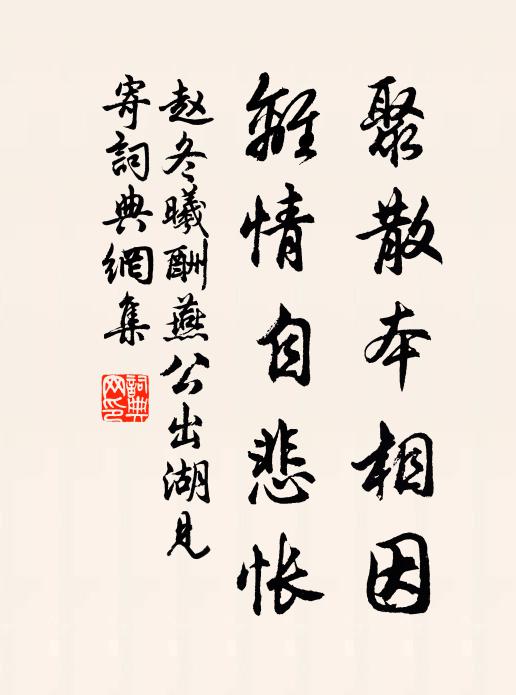 聚散本相因
離情自悲悵
赵冬曦酬燕公出湖見
寄詞典網集
詞典
网印